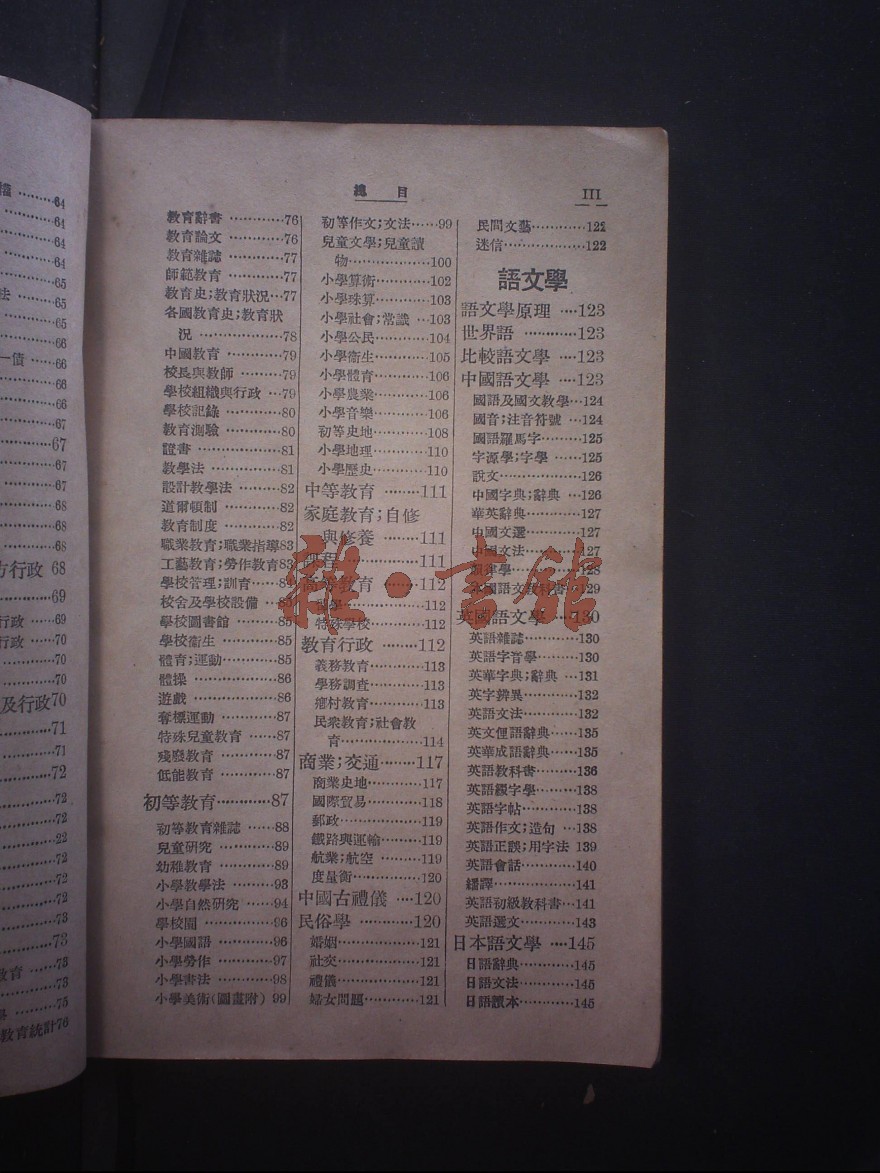 總 目 III
教育辭書 …………76
教育論文 …………76
教育雜誌 …………77
師範教育 …………77
教育史;教育狀況…77
各國教育史;教育狀
況 …………………78
中國教育 …………79
校長與教師…………79
學校組織與行政 …79
學校記錄……………80
教育測驗……………80
證書…………………81
教學法………………81
設計教學法…………82
道爾頓制……………82
教育制度……………82
職業教育;職業指導83
工藝教育;勞作教育83
學校管理;訓育……84
校舍及學校設備 …85
學校圖書館…………85
學校衞生……………85
體育;運動…………85
體操…………………86
遊戲…………………86
奪標運動……………87
特殊兒童教育………87
殘廢教育……………87
低能教育……………87
初等教育…………87
初等教育雜誌………88
兒童研究……………89
幼稚教育……………89
小學教學法…………93
小學自然研究………94
學校園………………96
小學國語……………96
小學勞作……………97
小學書法……………98
小學美術(圖畫附) 99
初等作文;文法……99
兒童文學;兒童讀
物…………………100
小學算術…………102
小學珠算…………103
小學社會;常識 …103
小學公民…………104
小學衞生…………105
小學體育…………106
小學農業…………106
小學音樂…………106
初等史地…………108
小學地理…………110
小學歷史…………110
中等教育 ………111
家庭教育;自修
與修養 ………111
課程 ……………111
高等教育 ………112
…………………112
特殊學校…………112
教育行政 ………112
義務教育…………113
學務調查…………113
鄉村教育…………113
民衆教育;社會教
育…………………114
商業;交通………117
商業史地…………117
國際貿易…………118
郵政………………119
鐵路與運輸………119
航業;航空………119
度量衡……………120
中國古禮儀 ……120
民俗學 …………120
婚姻………………121
社交………………121
禮儀………………121
婦女問題…………121
民間文藝…………122
迷信………………122
語文學
語文學原理 ……123
世界語 …………123
比較語文學 ……123
中國語文學 ……123
國語及國文教學…124
國音;注音符號 …124
國語羅馬字………125
字源學;字學……125
說文………………126
中國字典;辭典 …126
華英辭典…………127
中國文選…………127
中國文法…………127
律學………………128
國語文教科書……129
英國語文學 ……130
英語雜誌…………130
英語字音學………130
英華字典;辭典 …131
英字辨異…………132
英語文法…………132
英文俚語辭典……135
英華成語辭典……135
英語教科書………136
英語綴字學………138
英語字帖…………138
英語作文;造句 …138
英語正誤;用字法 139
英語會話…………140
繙譯………………141
英語初級教科書…141
英語選文…………143
日本語文學 ……145
日語辭典…………145
日語文法…………145
日語讀本…………145
雜·書館
織 ………64
64
64
64
法 ……65
65
65
66
一債 ……66
66
66
67
67
67
68
68
68
方行政 68
69
行政 ……69
行政 ……70
70
70
及行政70
71
71
72
72
72
22
72
72
72
73
73
教育 ……73
73
學 ………75
教育統計76